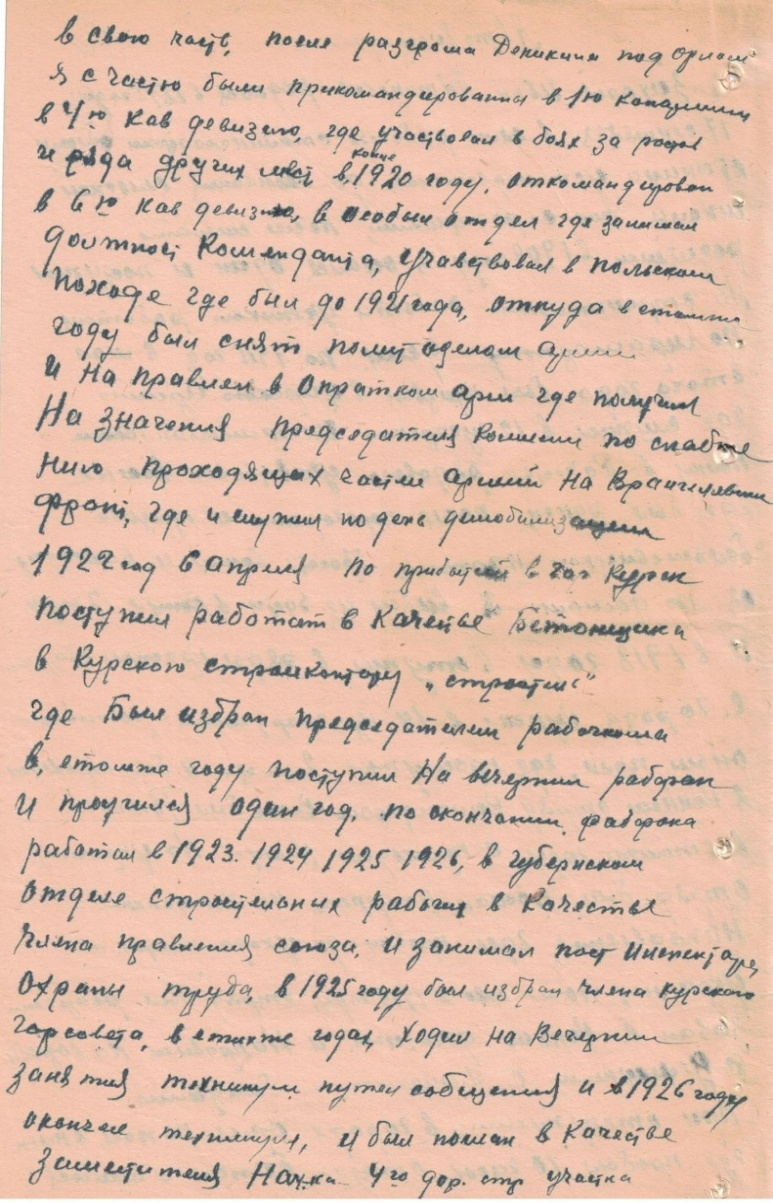 в свою часть, после разгрома Деникина под орлом
я с частю были прикомандированы в 1ю
в 4ю Кав девизию, где участвовал в боях за ростов
и ряда других мест в конце 1920 году, откомандирован
в 6ю Кав девизию, в особый отдел где занимал
должност Коменданта, участвовал в польском
походе где был до 1921 года, откуда в етомже
году был снят полит оделом армии
и на правлен в Опратком арми где получил
На значения председателя Комисии по снабже
нию проходящих части армий на Врангелевски
фронт, где и служил по день демобилизации
1922 год 6 апреля по прибытии в гор Курск
поступил работат в Качестве Бетонщика
в Курского стройконтору „строитель"
где Был избран председателем рабочкома
в, етомже году поступил На вечерний рабфак
и проучился один год. по окончании рабфака
работал в 1923. 1924 1925 1926, в губернском
отделе строительных рабочих в Качестве
члена правления союза, и занимал пост Инспектора,
охраны труда, в 1925 году был избран члена курского
горсовета, в етихже годах, ходил на Вечерние
занятия техникум путей сообщения и в 1926 году
окончил техникум, и был послан в Качестве
заместителя Нач.ка 4го дор. стр участка